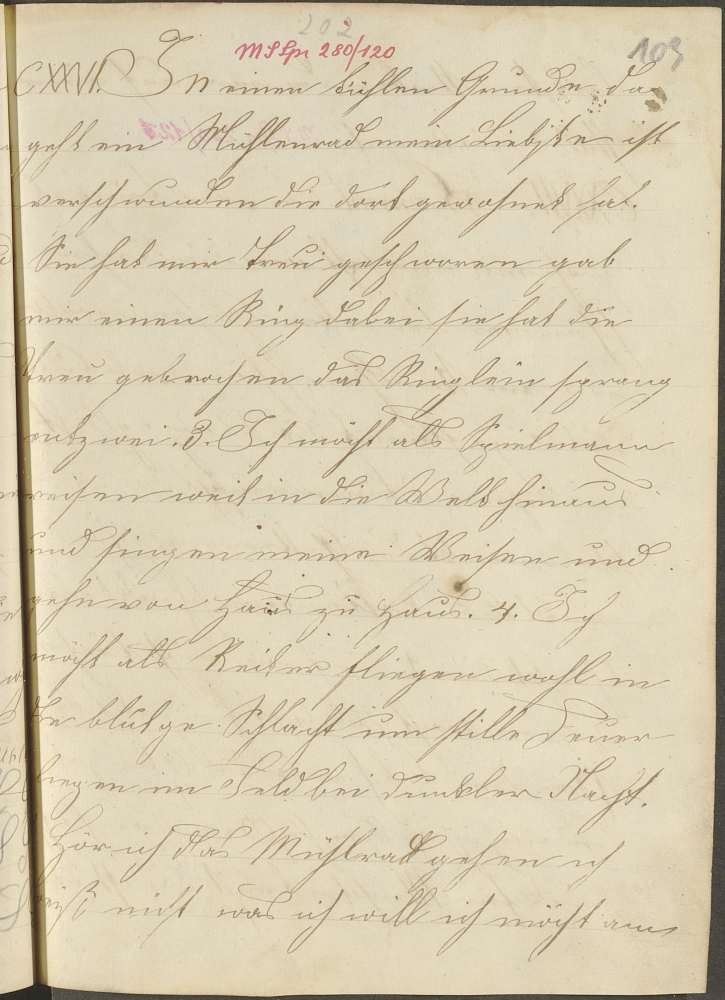 202
MSSpr 280/120
103
CXXVI. In einen kühlen Grunde da
geht ein Mühlenrad mein Liebste ist
verschwunden die dort gewohnet hat.
Sie hat mir Treu geschworen gab
mir einen Ring dabei sie hat die
treu gebrochen das Ringlein sprang
entzwei. 3. Ich möcht als Spielmann
reisen weit in die Welt hinaus
und singen meine Weisen und
gehn von Haus zu Haus. 4. Ich
möcht als Reiter fliegen wohl in
die blutge Schlacht um stille Feuer
liegen im Feld bei dunkler Nacht.
Hör ich das Mühlrad gehen ich
weiß nicht was ich will ich möcht am